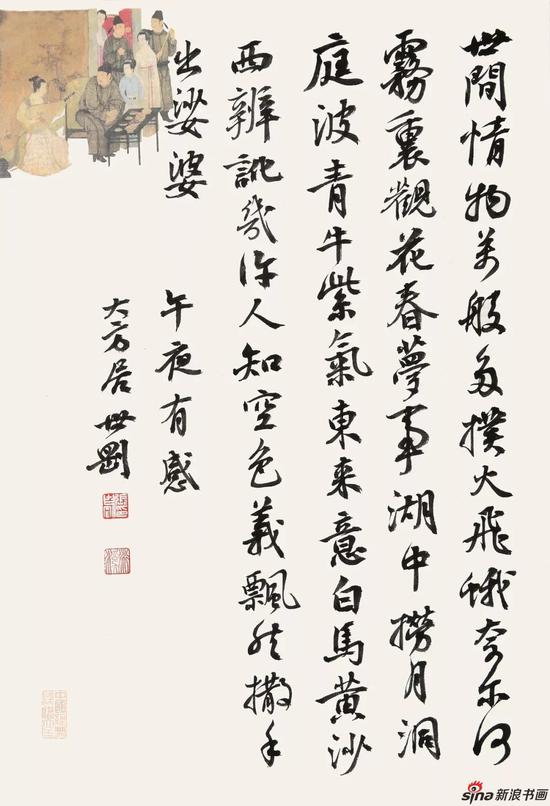 世間情物萬般多撲火飛蛾奈尔何
霧裏觀花春夢事湖中撈月洞
庭波青牛紫氣東来意白馬黄沙
西辨訛幾許人知空色義飄然撒手
出娑婆
午夜有感
大方居世剛
sina新浪书画